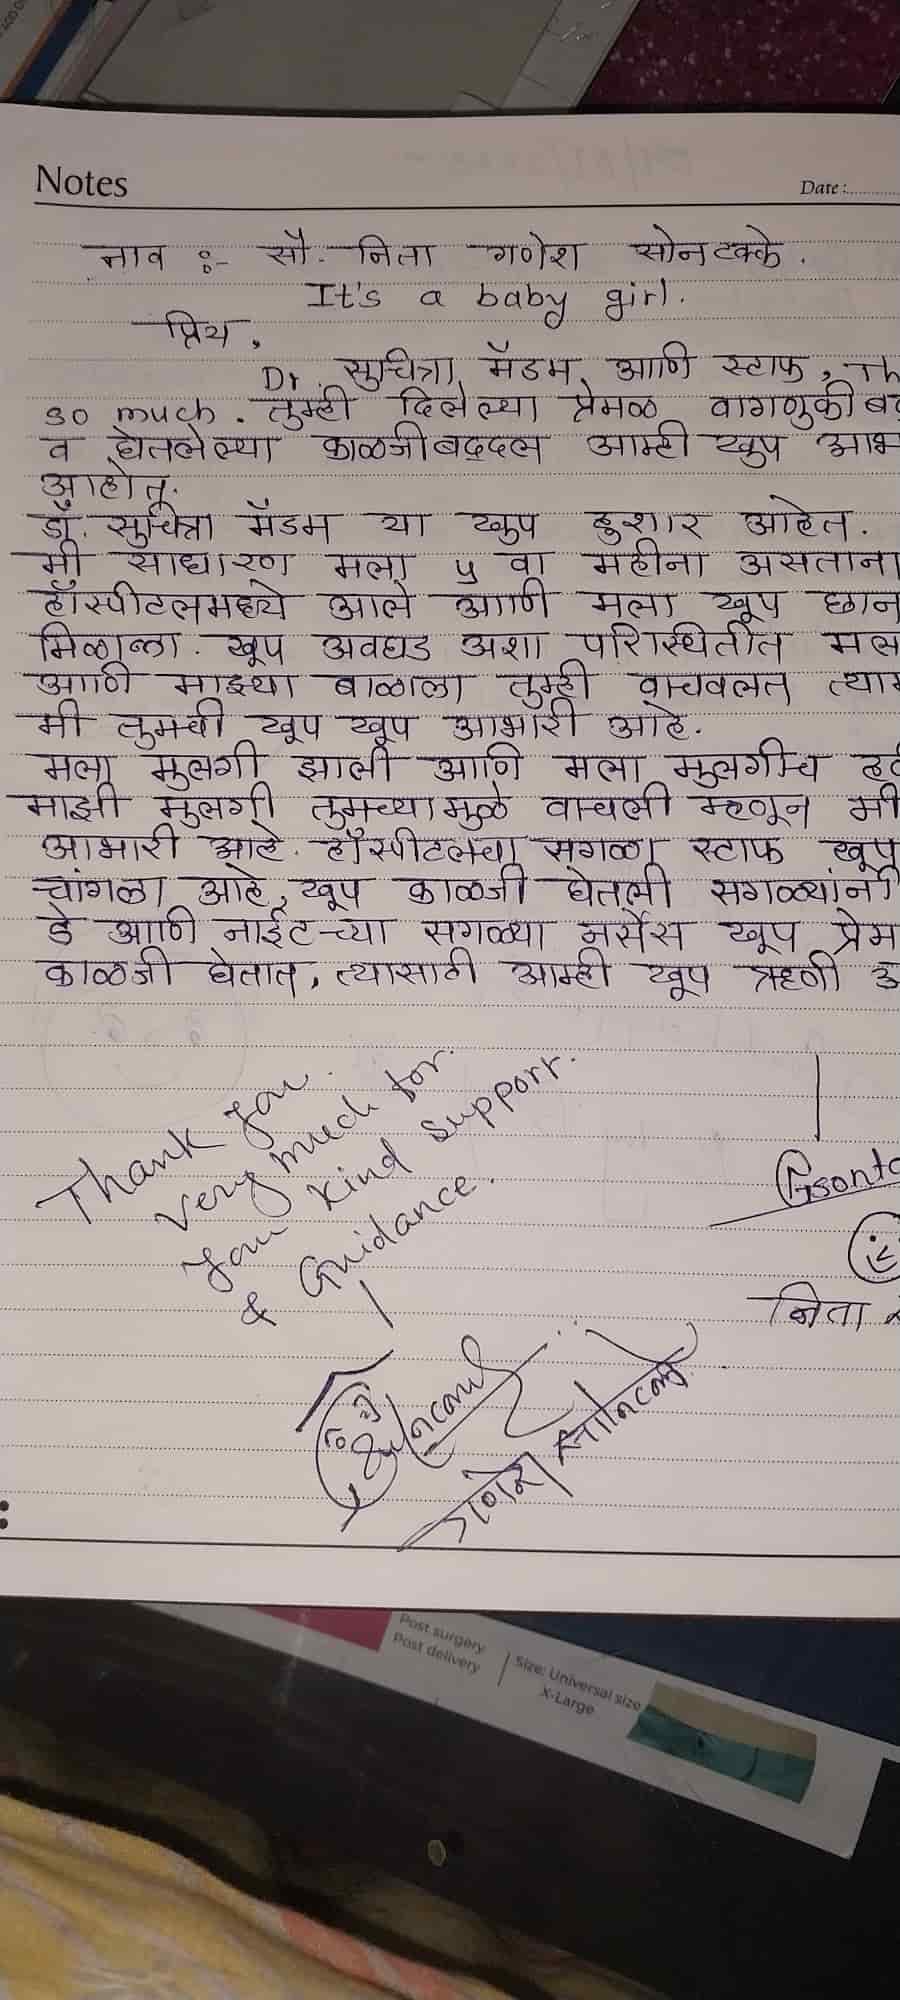 Notes
Date:
नाव :- सौ. निता गणेश सोनटक्के.
It's a baby girl.
प्रिय,
Dr. सुचित्रा मॅडम, आणि स्टाफ, Th
so much. तुम्ही दिलेल्या प्रेमळ वागणुकीबद
व घेतलेल्या काळजीबद्दल आम्ही खुप आभ
आहोत.
डॉ. सुचित्रा मॅडम या खुप हुशार आहेत.
मी साधारण मला ५ वा महीना असताना
हॉस्पीटलमध्ये आले आणि मला खूप छान
मिळाला. खूप अवघड अशा परिस्थितीत मल
आणि माझ्या बाळाला तुम्ही वाचवलत त्या
मी तुमची खूप खूप आभारी आहे.
मला मुलगी झाली आणि मला मुलगीच ह
माझी मुलगी तुमच्यामुळे वाचली म्हणून मी
आभारी आहे. हॉस्पीटलचा सगळा स्टाफ खूप
चांगला आहे, खूप काळजी घेतली सगळ्यांनी
डे आणि नाईटच्या सगळ्या नर्सेस खूप प्रेम
काळजी घेतात, त्यासाठी आम्ही खूप ऋणी
Thank you.
very much for.
your kind support.
& Guidance.
Gsonta
निता
गणेश सोनटक्के
Post surgery
Post delivery
Size: Universal size
X-Large